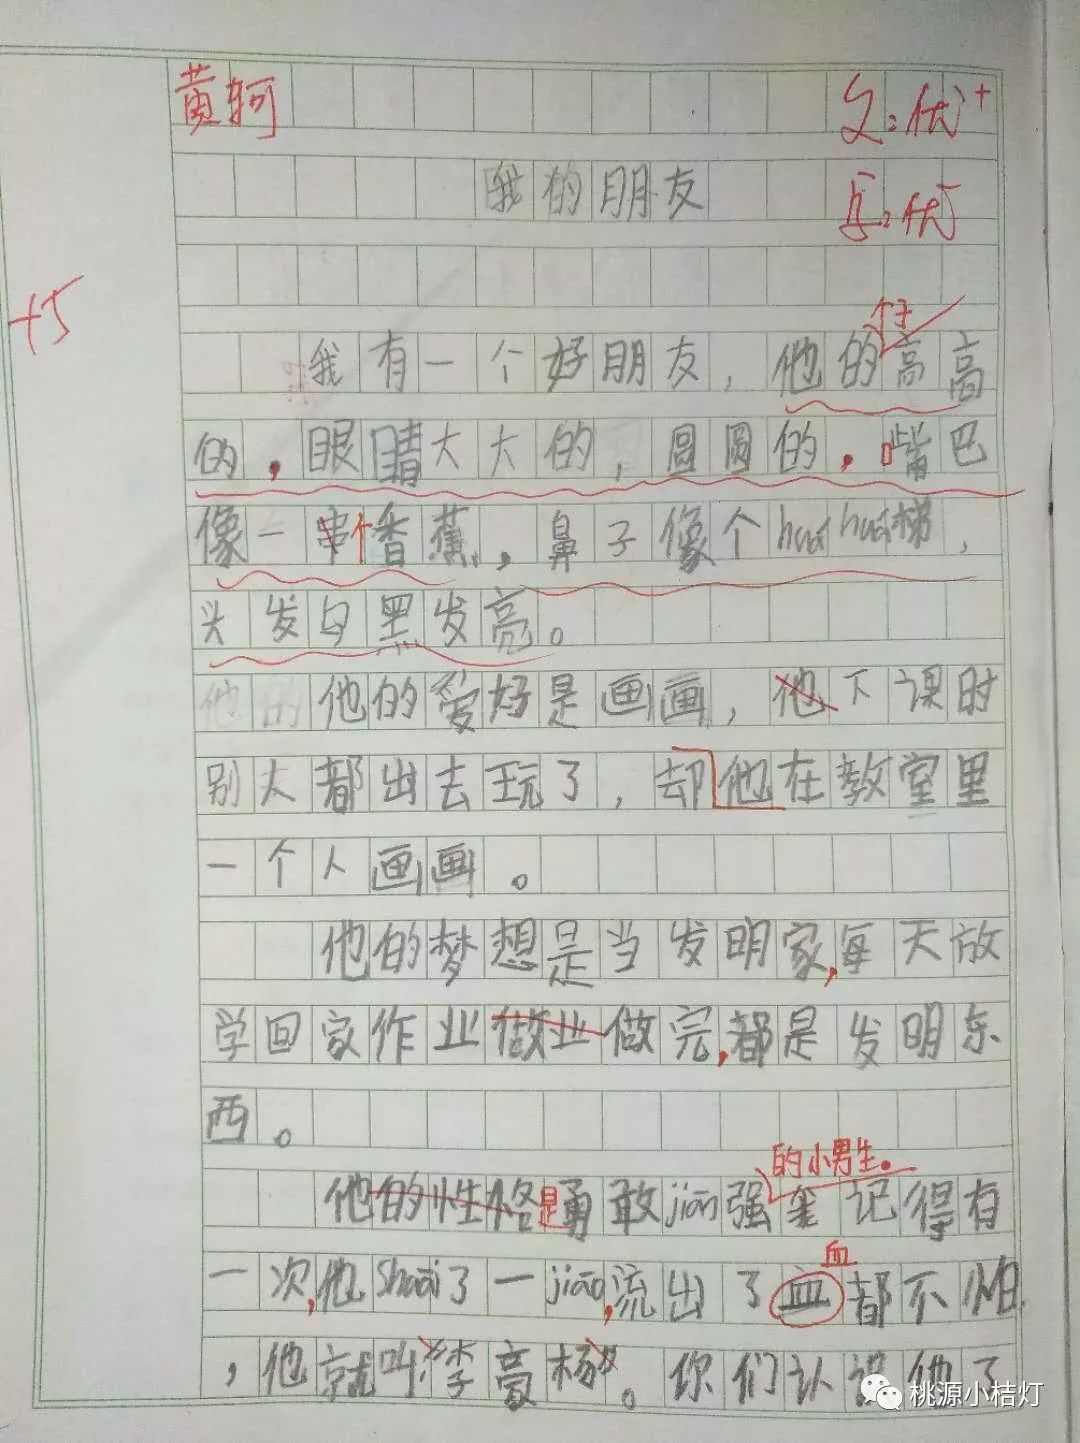 黄轲
文:优+
写:优
我的朋友
+5
个子
我有一个好朋友，他的高高
的，眼睛大大的，圆圆的，嘴巴
像一串个香蕉，鼻子像个huá huá梯，
头发乌黑发亮。
他的爱好是画画，他下课时
别人都出去玩了，却他在教室里
一个人画画。
他的梦想是当发明家，每天放
学回家作业做业做完，都是发明东
西。
的小男生。
他的性格是勇敢jiān强 记得有
血
一次，他shuāi了一jiāo，流出了血都不怕
，他就叫“李高杨”。你们认识他了
桃源小桔灯